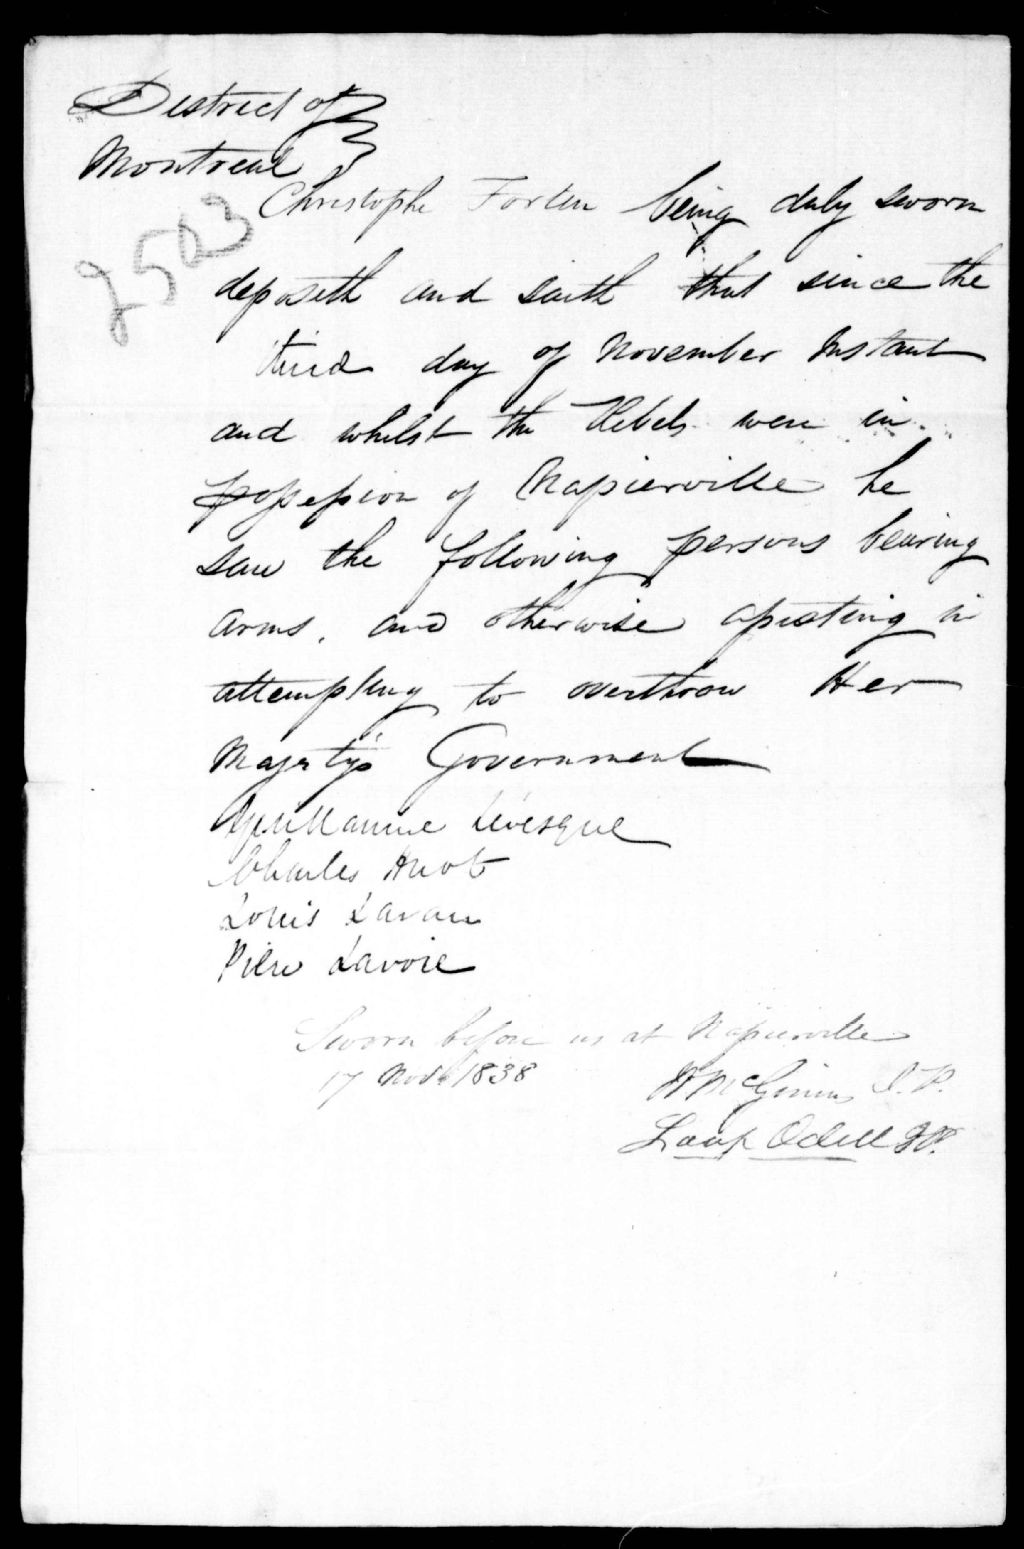 District of
Montreal
2503
Christophe Fortin being duly sworn
deposeth and saith that since the
third day of November Instant
and whilst the Rebels were in
possession of Napierville he
saw the following persons bearing
arms, and otherwise assisting in
attempting to overthrow Her
Majesty's Government
Lévesque
Charles Huot
Louis Lavau
Piere Lavoie
Sworn before us at Napierville
17 Nov 1838
McGinnis J.P.
Odell JP.